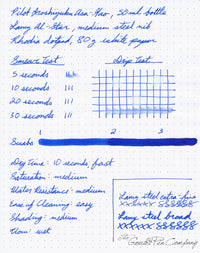 Pilot Iroshizuku Asa-Gao, 50ml bottle
Lamy Al-Star, medium steel nib
Rhodia dotpad, 80g white paper
Smear Test Drip Test
5 seconds
10 seconds
20 seconds
30 seconds
1 2 3
Swabs
Dry Time: 10 seconds, fast
Saturation: medium
Water Resistance: medium
Ease of Cleaning: easy
Shading: medium
Flow: wet
Lamy steel extra-fine
xxxxxx 888888
Lamy steel broad
xxxxxx 888888
The Goulet Pen Company